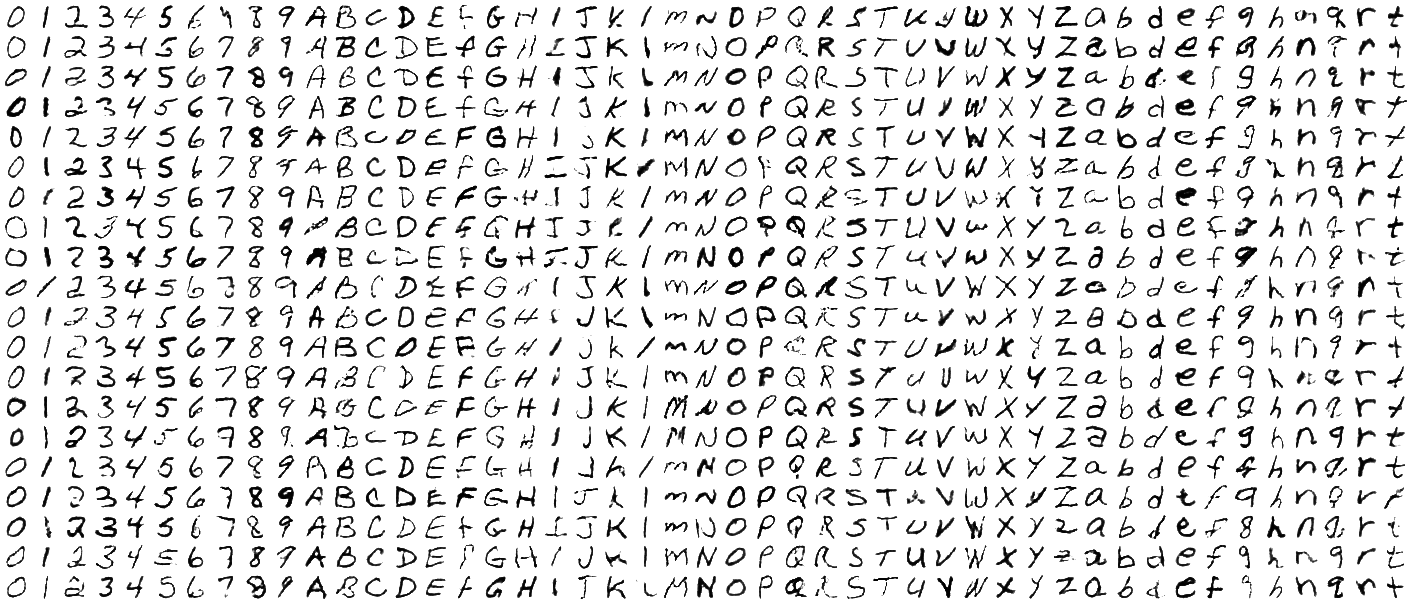 0 1 2 3 4 5 6 7 8 9 A B C D E f G H I J K l m N O P Q R S T U V W X Y Z a b d e f g h n q r t
0 1 2 3 4 5 6 7 8 9 A B C D E f G H I J K l m N O P Q R S T U V W X Y Z a b d e f g h n q r t
0 1 2 3 4 5 6 7 8 9 A B C D E f G H I J K l M N O P Q R S T U V W X Y Z a b d e f g h n q r t
0 1 2 3 4 5 6 7 8 9 A B C D E f G H I J K l m N O P Q R S T U V W X Y Z a b d e f g h n q r t
0 1 2 3 4 5 6 7 8 9 A B C D E F G H I J K l M N O P Q R S T U V W X Y Z a b d e f g h n q r t
0 1 2 3 4 5 6 7 8 9 A B C D E f G H I J K l M N O P Q R S T U V W X Y Z a b d e f g h n q r t
0 1 2 3 4 5 6 7 8 9 A B C D E F G H I J K l m N O P Q R S T U V W X Y Z a b d e f g h n q r t
0 1 2 3 4 5 6 7 8 9 A B C D E F G H I J K l m N O P Q R S T U V W X Y Z a b d e f g h n q r t
0 1 2 3 4 5 6 7 8 9 A B C D E f G H I J K l m N O P Q R S T U V W X Y Z a b d e f g h n q r t
0 1 2 3 4 5 6 7 8 9 A B C D E F G H I J K l m N O P Q R S T U V W X Y Z a b d e f g h n q r t
0 1 2 3 4 5 6 7 8 9 A B C D E F G H I J K l m N O P Q R S T U V W X Y Z a b d e f g h n q r t
0 1 2 3 4 5 6 7 8 9 A B C D E F G H I J K l m N O P Q R S T U V W X Y Z a b d e f g h n q r t
0 1 2 3 4 5 6 7 8 9 A B C D E F G H I J K l m N O P Q R S T U V W X Y Z a b d e f g h n q r t
0 1 2 3 4 5 6 7 8 9 A B C D E F G H I J K l M N O P Q R S T U V W X Y Z a b d e f g h n q r t
0 1 2 3 4 5 6 7 8 9 A B C D E F G H I J K l M N O P Q R S T U V W X Y Z a b d e f g h n q r t
0 1 2 3 4 5 6 7 8 9 A B C D E F G H I J K l m N O P Q R S T U V W X Y Z a b d e f g h n q r t
0 1 2 3 4 5 6 7 8 9 A B C D E F G H I J K l m N O P Q R S T U V W X Y Z a b d e f g h n q r t
0 1 2 3 4 5 6 7 8 9 A B C D E f G H I J K l m N O P Q R S T U V W X Y Z a b d e f g h n q r t
0 1 2 3 4 5 6 7 8 9 A B C D E F G H I J K l m N O P Q R S T U V W X Y Z a b d e f g h n q r t
0 1 2 3 4 5 6 7 8 9 A B C D E f G H I J K L M N O P Q R S T U V W X Y Z a b d e f g h n q r t